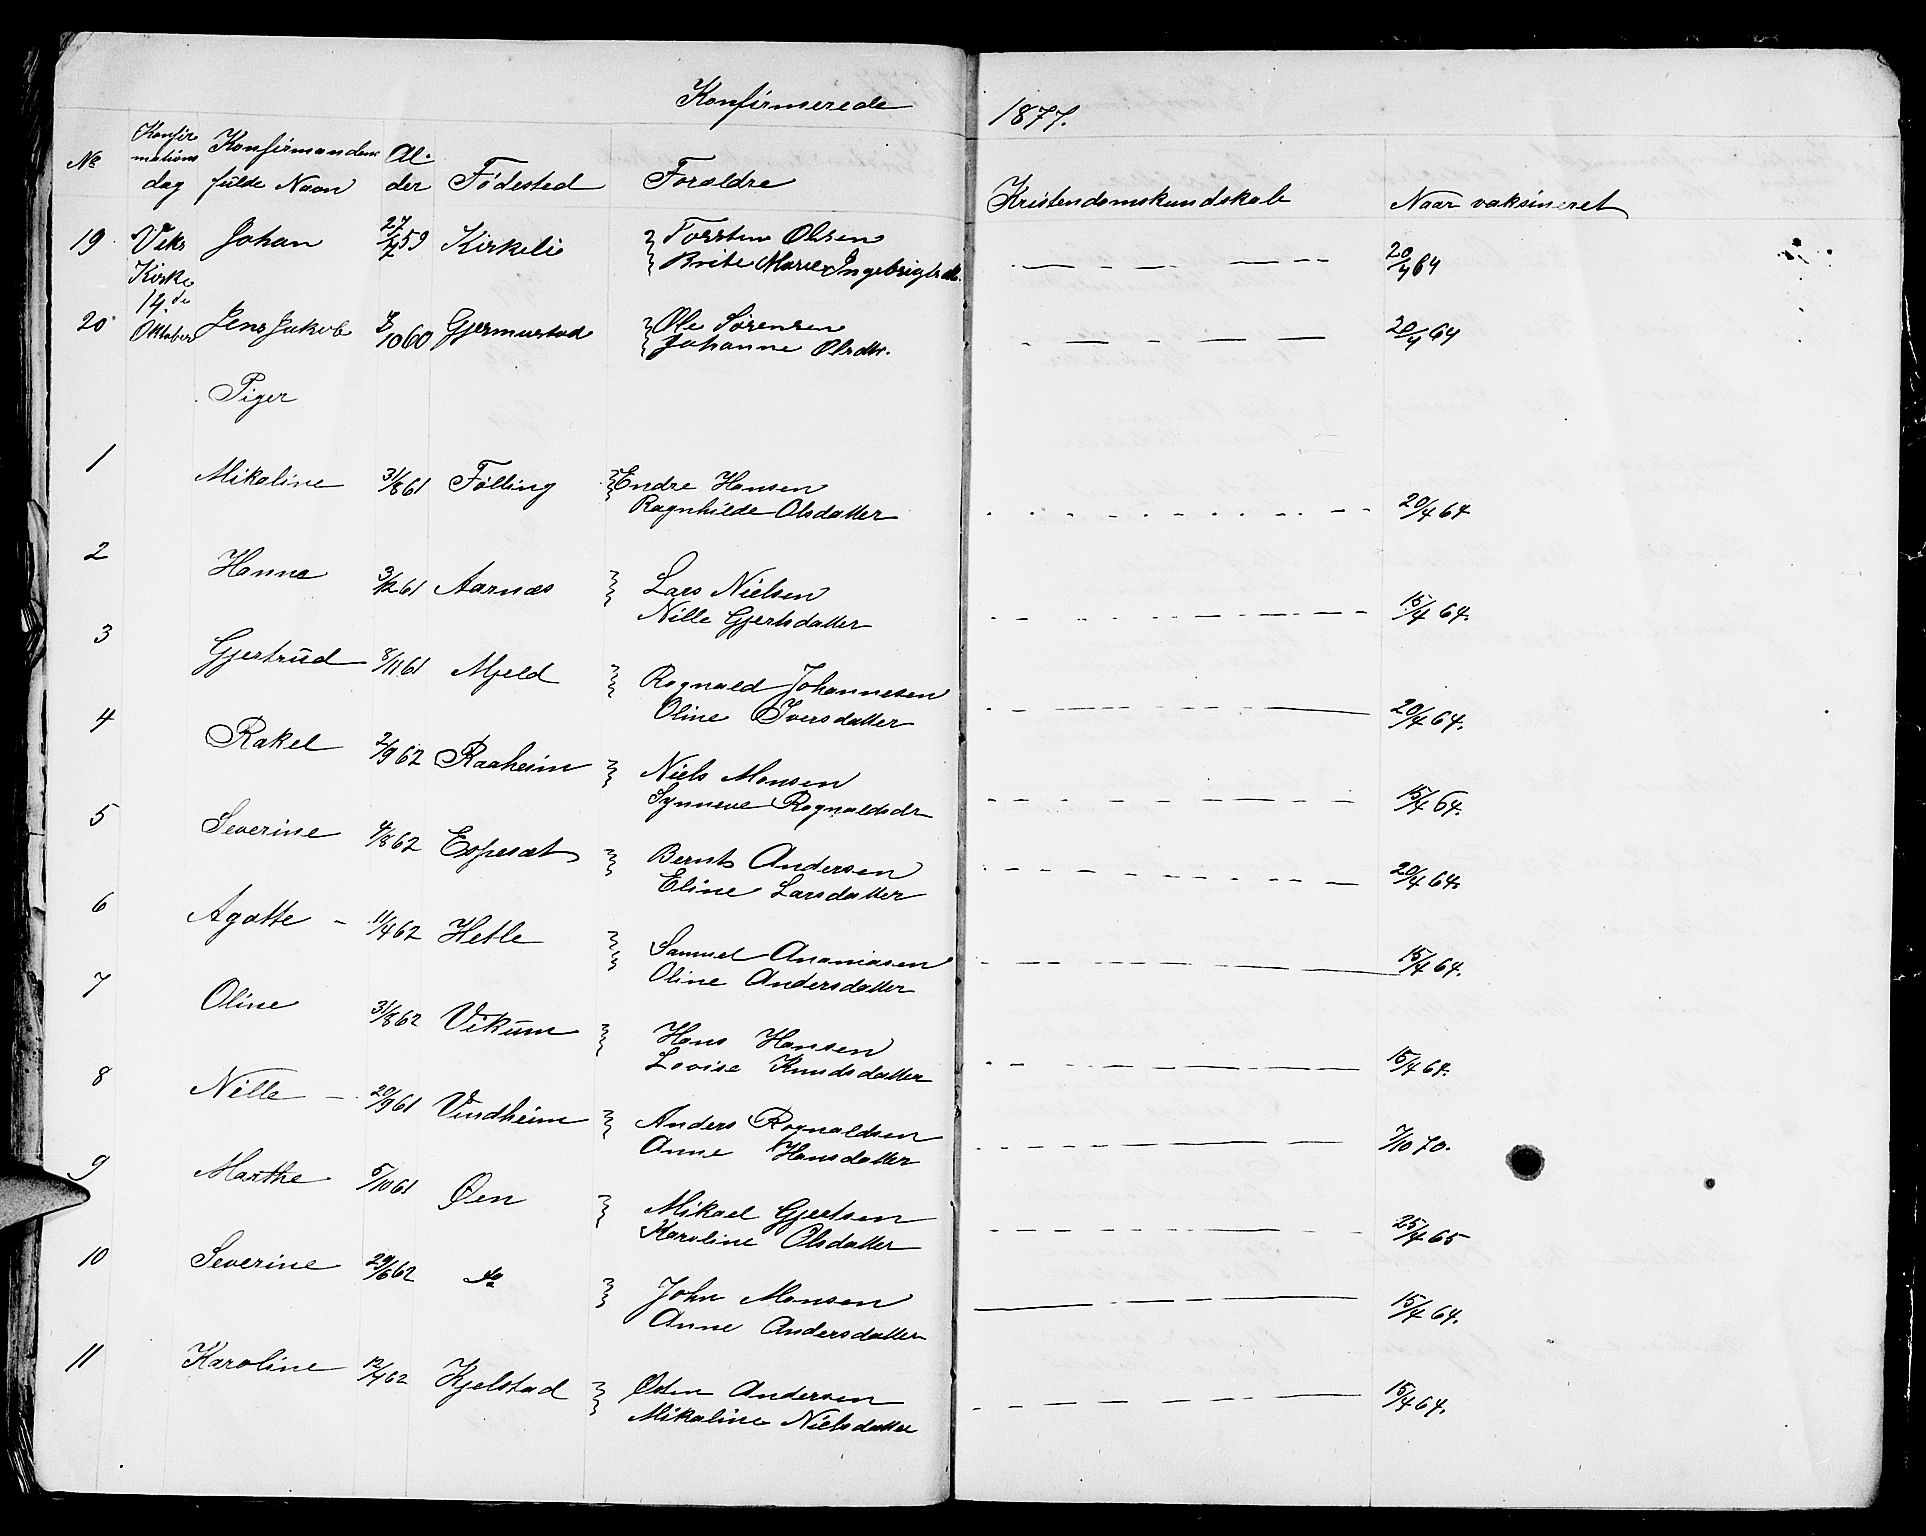 Konfirmerede 1877.
No Konfirmationsdag Konfirmandens fulde Navn Alder Fødested Forældre Kristendomskundskab Naar vaksineret
19. Viks Johan 27/4 59 Kirkelie Torsten Olsen
Kirke Brite Marie Ingebrigtsdr. 20/4 64
14de
20 Oktober Jens Jakob 10 60 Gjermunstad Ole Sørensen 20/4 64
Johanne Olsdtr.
Piger
1 Mikaline 31/8 61 Følling Endre Hansen
Ragnhilde Olsdatter 20/4 64
2 Hanna 3/12 61 Aarnæs Lars Nielsen
Nille Gjertsdatter 15/4 64.
3 Gjertrud 8/11 61 Mjeld Rognald Johannesen
Oline Iversdatter 20/4 64.
4 Rakel 2/9 62 Raaheim Niels Monsen
Synneve Rognaldsdr 15/4 64.
5 Severine 4/8 62 Espesæt Bernt Andersen
Eline Larsdatter 20/4 64.
6 Agatte 11/4 62 Hetle Samuel Ananiasen
Oline Andersdatter 15/4 64.
7 Oline 31/8 62 Vikum Hans Hansen
Lovise Knudsdatter 15/4 64.
8 Nille 20/9 61 Vindheim Anders Rognaldsen
Anne Hansdatter 7/10 70.
9 Marthe 5/10 61 Øen Mikael Gjertsen
Karoline Olsdatter 25/4 65
10 Severine 29/6 62 do John Monsen
Anne Andersdatter 15/4 64.
11 Karoline 12/4 62 Kjelstad Østen Andersen
Mikaline Nielsdatter 15/4 64.